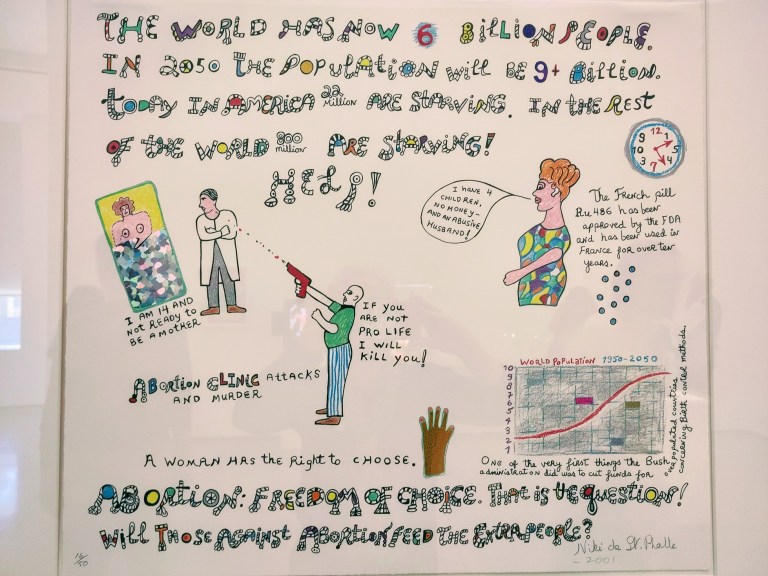 THE WORLD HAS NOW 6 BILLION PEOPLE.
IN 2050 THE POPULATION WILL BE 9+ BILLION.
TODAY IN AMERICA 22 Million ARE STARVING. IN THE REST
OF THE WORLD 800 million ARE STARVING!
HELP!
I HAVE 4
CHILDREN,
NO MONEY-
AND AN ABUSIVE
HUSBAND!
The French pill
R.u 486 has been
approved by the FDA
and has been used in
France for over ten
years.
I AM 14 AND
NOT READY TO
BE A MOTHER
IF YOU
ARE NOT
PRO LIFE
I WILL
KILL YOU!
ABORTION CLINIC ATTACKS
AND MURDER
WORLD POPULATION 1950-2050
10
9
8
7
6
5
4
3
2
1
A WOMAN HAS THE RIGHT TO CHOOSE.
One of the very first things the Bush
administration did was to cut funds for
populated countries
concerning Birth control methods.
ABORTION: FREEDOM OF CHOICE. THAT IS THE QUESTION!
WILL THOSE AGAINST ABORTION FEED THE EXTRA PEOPLE?
Niki de St. Phalle
- 2001